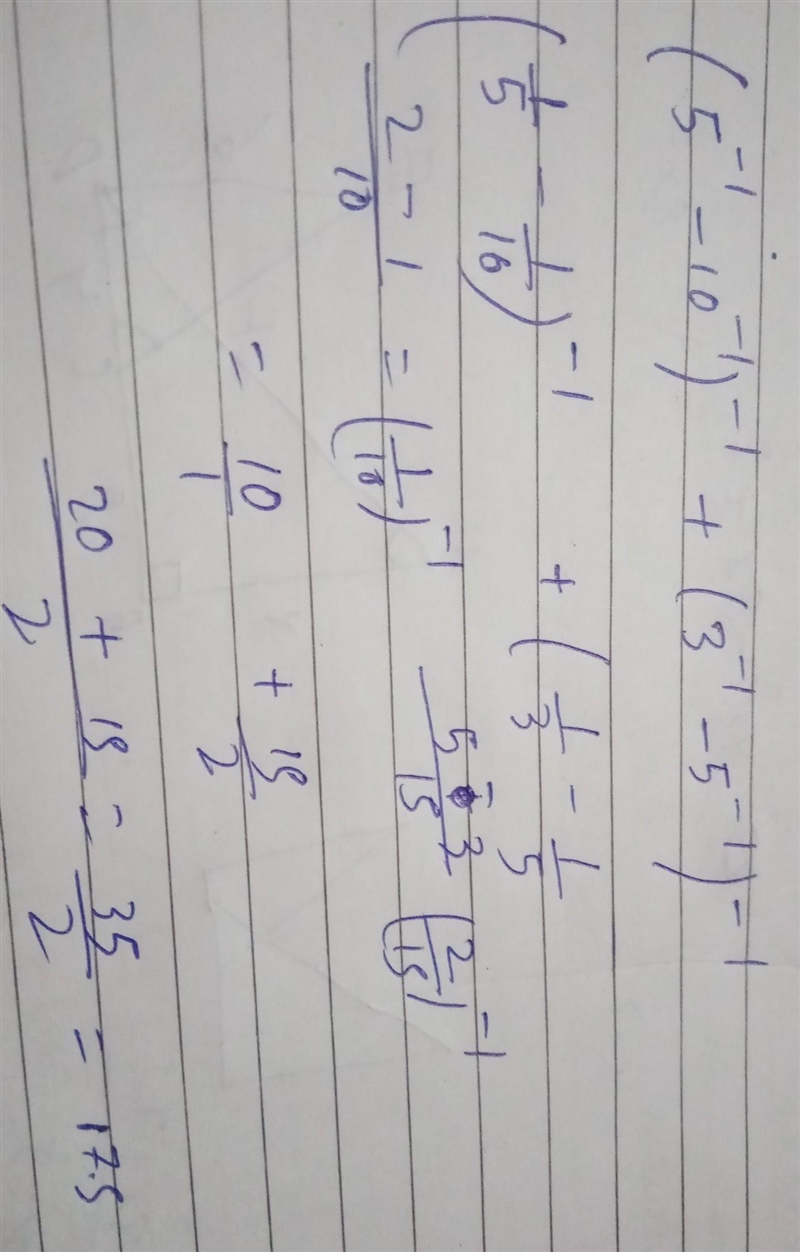 (5⁻¹ - 10⁻¹)⁻¹ + (3⁻¹ - 5⁻¹)⁻¹
(1/5 - 1/10)⁻¹ + (1/3 - 1/5
2 - 1/10 = (1/10)⁻¹ 5 - 3/15 (2/15)⁻¹
= 10/1 + 15/2
20 + 15/2 = 35/2 = 17.5